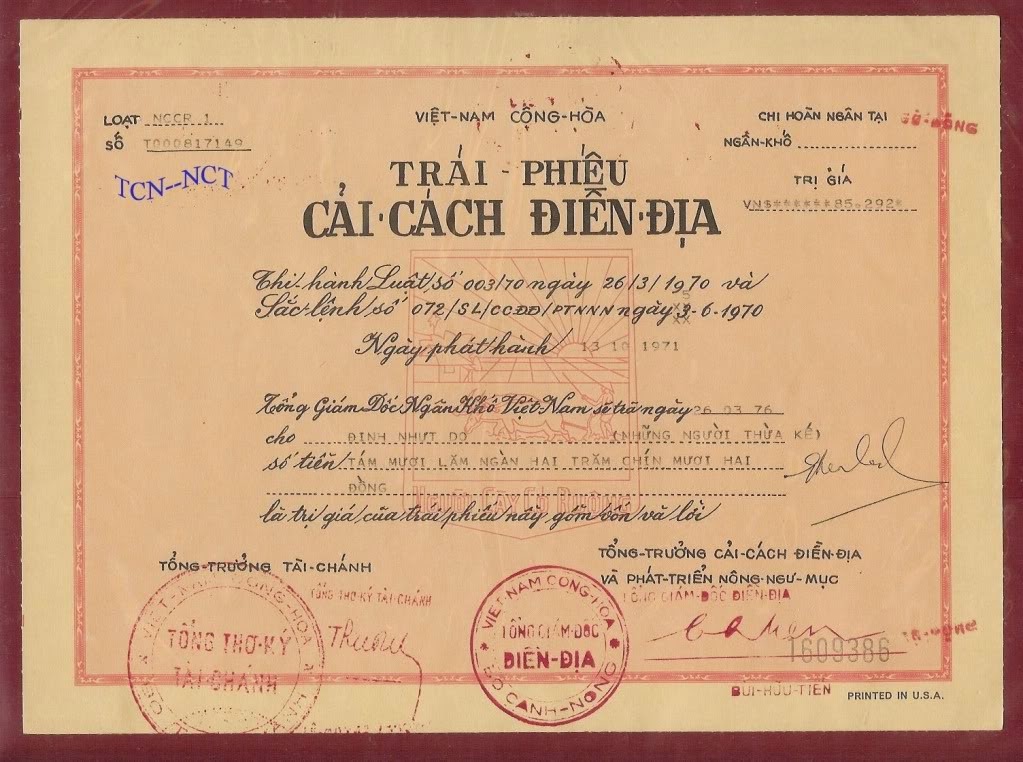 LOẠT NCCR 1
SỐ T000817149
TCN--NCT
VIỆT-NAM CỘNG-HÒA
CHI HOÀN NGÂN TẠI
NGÂN-KHỐ
TRỊ GIÁ
VN$******85.292*
TRÁI-PHIẾU
CẢI-CÁCH ĐIỀN-ĐỊA
Thi-hành Luật số 003/70 ngày 26/3/1970 và
Sắc-lệnh số 072/SL/CCĐĐ/PTNNN ngày 3-6-1970
5
XX
XX
Ngày phát hành 13 10 1971
Tổng Giám Đốc Ngân Khố Việt Nam sẽ trả ngày 26 03 76
cho ĐINH NHUT DO (NHỮNG NGƯỜI THỪA KẾ)
số tiền TÁM MƯƠI LĂM NGÀN HAI TRĂM CHÍN MƯƠI HAI
ĐỒNG
Người Cày Có Ruộng
là trị giá của trái phiếu này gồm vốn và lời
TỔNG-TRƯỞNG TÀI-CHÁNH
TỔNG-TRƯỞNG CẢI-CÁCH ĐIỀN-ĐỊA
VÀ PHÁT-TRIỂN NÔNG-NGƯ-MỤC
TỔNG THƠ-KÝ TÀI-CHÁNH
TỔNG GIÁM-ĐỐC ĐIỀN-ĐỊA
VIỆT-NAM CỘNG-HÒA
TỔNG THƠ-KÝ
TÀI-CHÁNH
VIỆT-NAM CỘNG-HÒA
TỔNG GIÁM-ĐỐC
ĐIỀN-ĐỊA
BỘ CANH-NÔNG
1609386
BÙI-HỮU-TIẾN
PRINTED IN U.S.A.